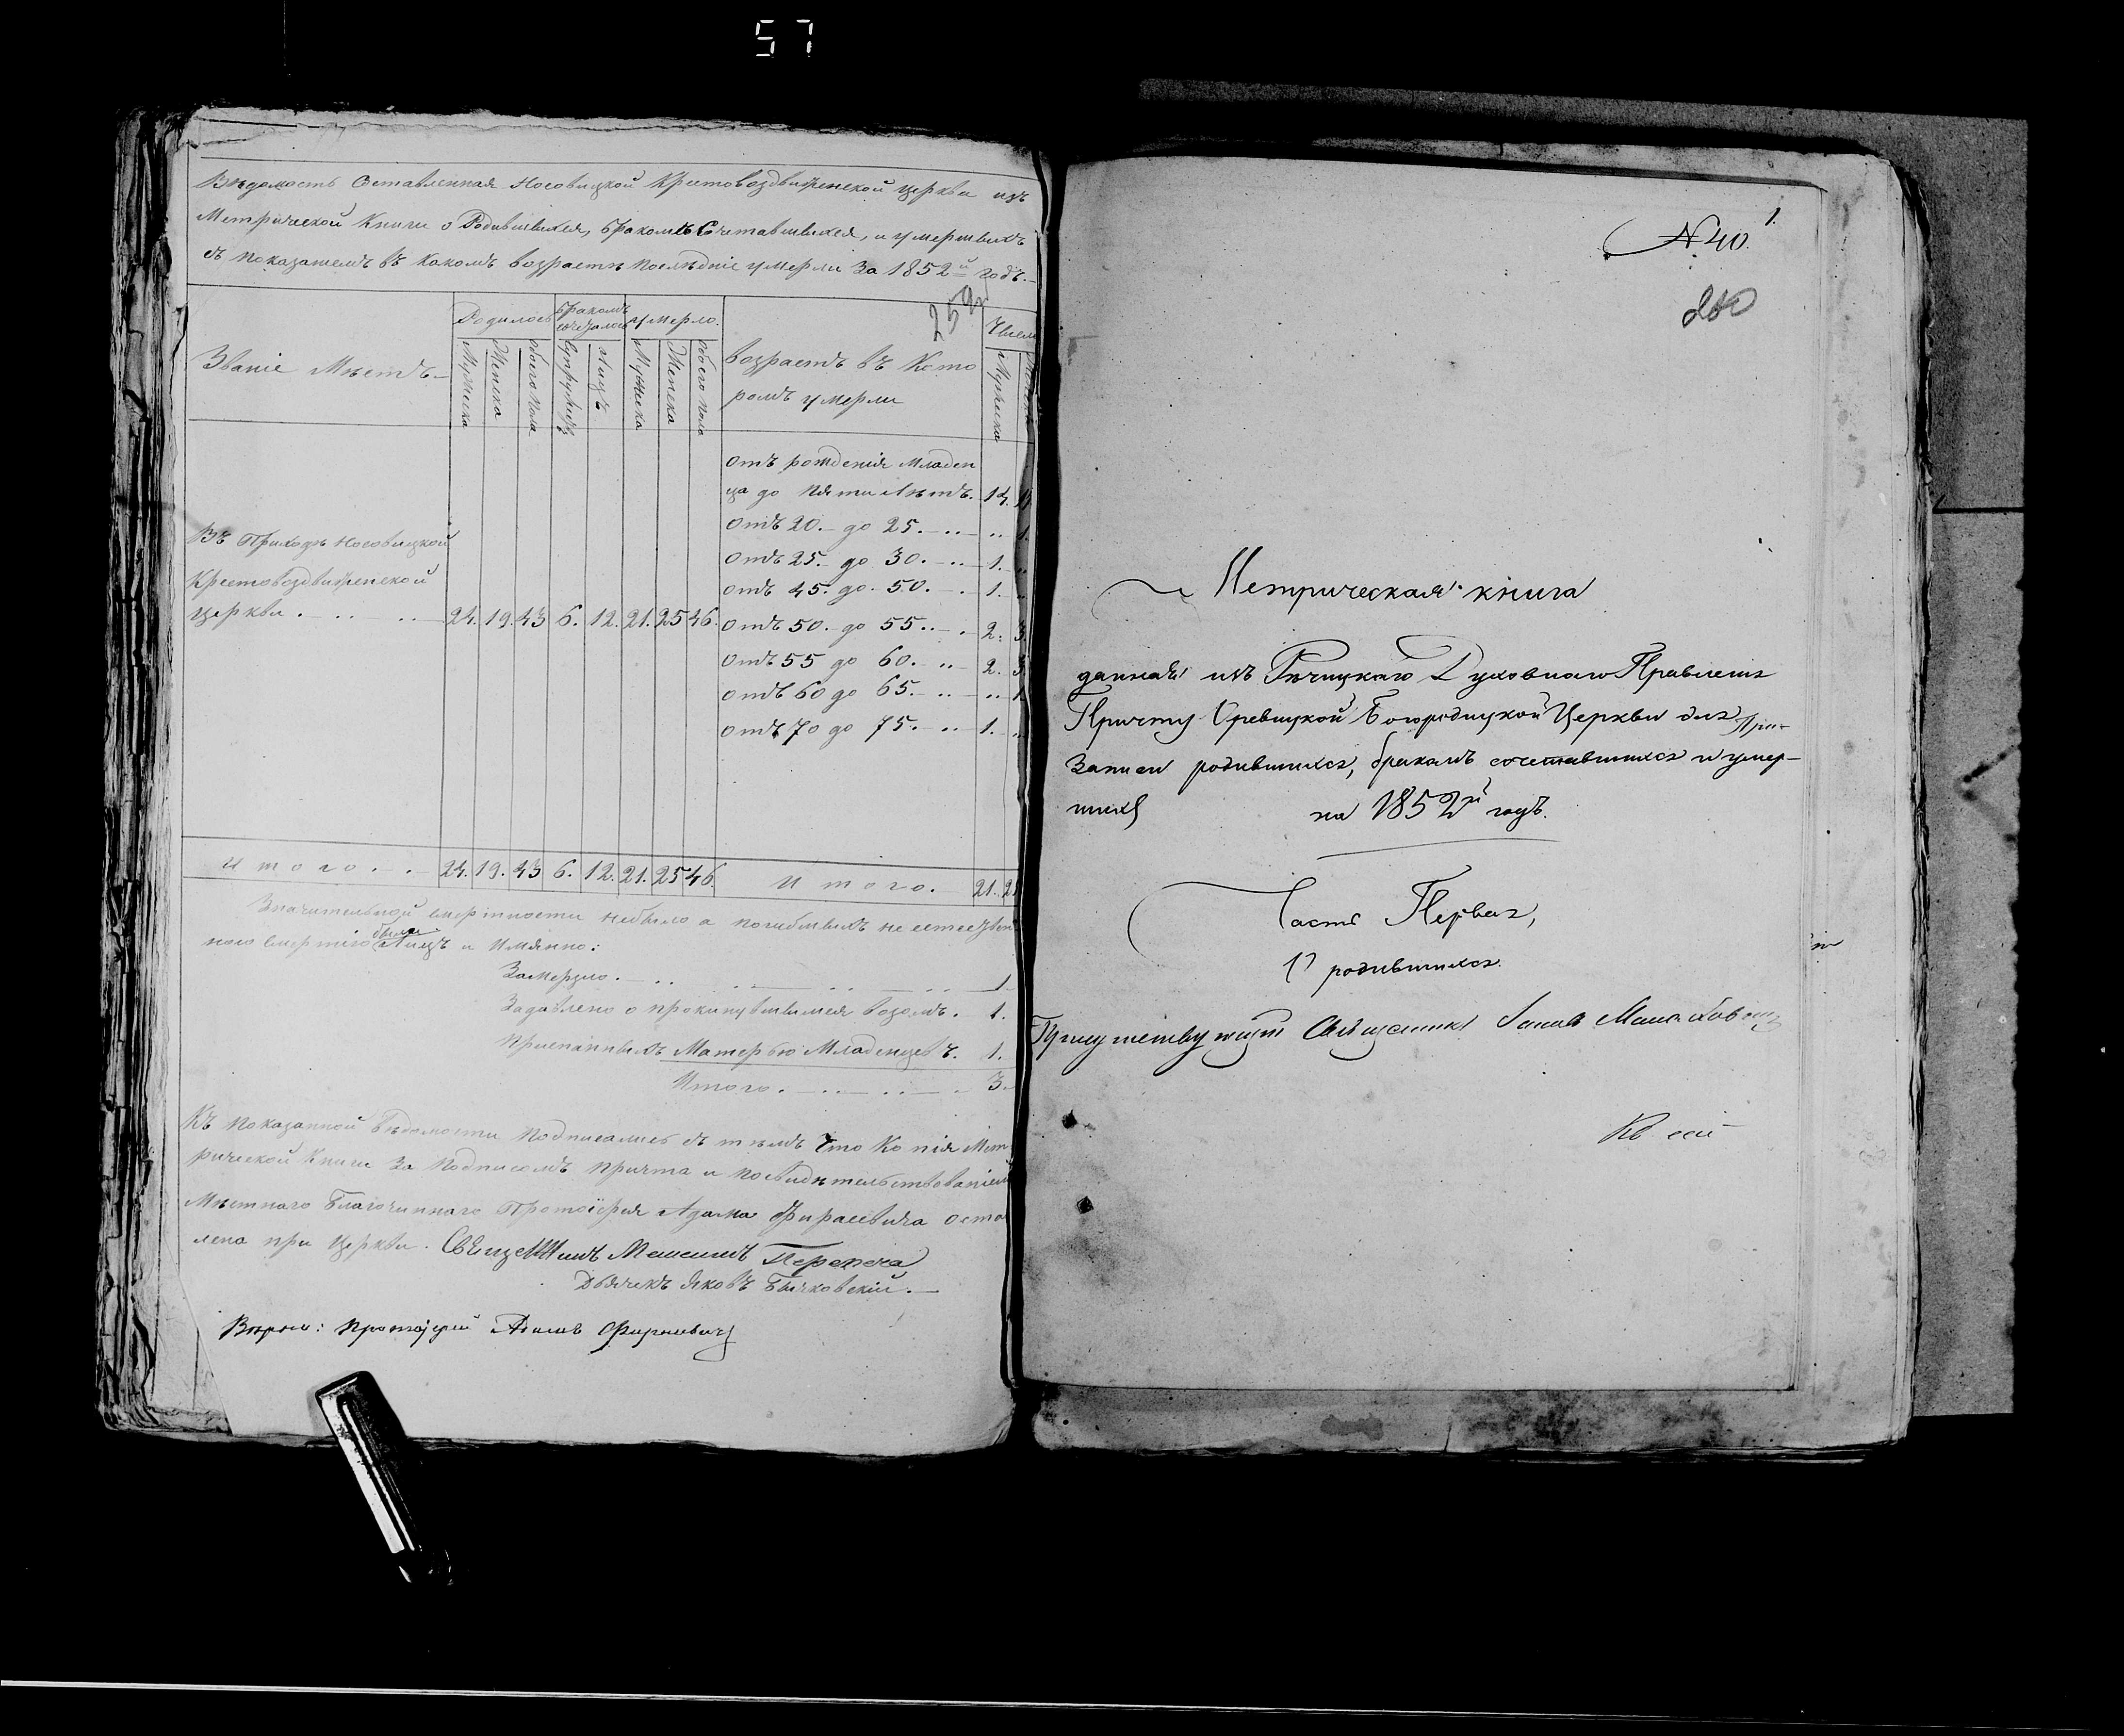 57
Вѣдомость Оставленная Носовицкой Крестовоздвиженской церкви изъ
Метрической Книги о Родившихся, бракомъ Сочетавшихся, и умершихъ
съ показаніемъ въ какомъ возрастѣ послѣдніе умерли За 1852й годъ.
259
Званіе Мѣстъ
Родилось
бракомъ сочеталось
умерло.
Возрастъ въ Кото
ромъ умерли
Число
Мужеска
Женска
обоего пола
Супружествъ
Лицъ
Мужеска
Женска
обоего пола
Мужеска
отъ рожденія младен
ца до пяти Лѣтъ. 14.
отъ 20. до 25. .. 1.
отъ 25. до 30. 1. ..
отъ 45. до 50. 1.
отъ 50. до 55. 2. 3.
отъ 55 до 60. 2. 3
отъ 60 до 65. .. 1
отъ 70 до 75. 1. ..
Въ Приходѣ Носовицкой
Крестовоздвиженской
церкви. 24. 19. 43 6. 12. 21. 25 46.
Итого. 24. 19. 43 6. 12. 21. 25 46. Итого. 21.
Значительной смертности небыло а погибшихъ не естествен
ною смертію было Лицъ и Имянно:
Замерзло. 1
Задавлено опрокинувшимся возомъ. 1.
Приспанныхъ Матерью Младенцевъ. 1.
Итого. 3.
Къ показанной Вѣдомости подписались съ тѣмъ что Копія Мет
рической Книги За подписомъ причта и посвидѣтельствованіемъ
Мѣстнаго Благочиннаго Протоіерея Адама Фирасевича оста
лена при Церкви. Священникъ Максимъ Перепеча
Дьячекъ Яковъ Бычковскій.
Вѣрно: протоіерей Адамъ Фирасевичъ
1.
№ 40.
260
Метрическая книга
данная изъ Рѣчицкаго Духовнаго Правленія
Причту Оревицкой Богородицкой Церкви для
Записи родившихся, бракомъ сочетавшихся и умер-
шихъ на 1852й годъ.
Часть Первая,
О родившихся.
Присутствующій Священникъ
Къ сей